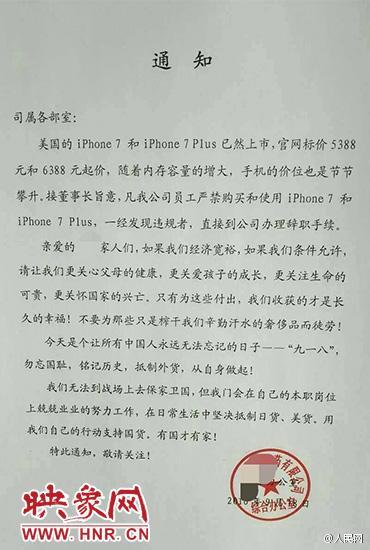 通 知
司属各部室：
美国的 iPhone 7 和 iPhone 7 Plus 已然上市，官网标价 5388
元和 6388 元起价，随着内存容量的增大，手机的价位也是节节
攀升。接董事长旨意，凡我公司员工严禁购买和使用 iPhone 7 和
iPhone 7 Plus，一经发现违规者，直接到公司办理辞职手续。
亲爱的 家人们，如果我们经济宽裕，如果我们条件允许，
请让我们更关心父母的健康，更关爱孩子的成长，更关注生命的
可贵，更关怀国家的兴亡。只有为这些付出，我们收获的才是长
久的幸福！不要为那些只是榨干我们辛勤汗水的奢侈品而徒劳！
今天是个让所有中国人永远无法忘记的日子——“九一八”，
勿忘国耻，铭记历史，抵制外货，从自身做起！
我们无法到战场上去保家卫国，但我们会在自己的本职岗位
上兢兢业业的努力工作，在日常生活中坚决抵制日货、美货。用
我们自己的行动支持国货。有国才有家！
特此通知，敬请关注！
药有限公司
综合办公室
公室
日
映象网
WWW.HNR.CN
@人民网